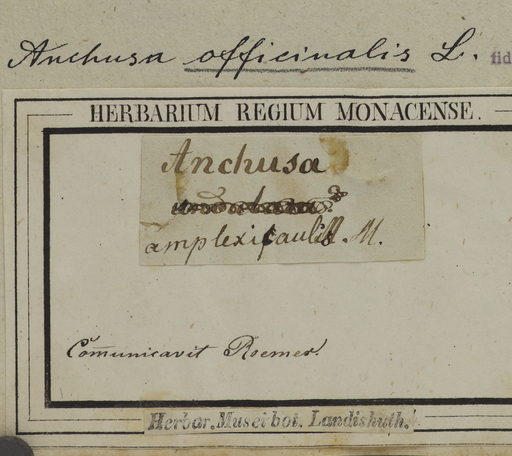 Anchusa officinalis L. fid
HERBARIUM REGIUM MONACENSE.
Anchusa
amplexicaulis. M.
Com̄unicavit Roemer.
Herbar. Musei bot. Landishuth.